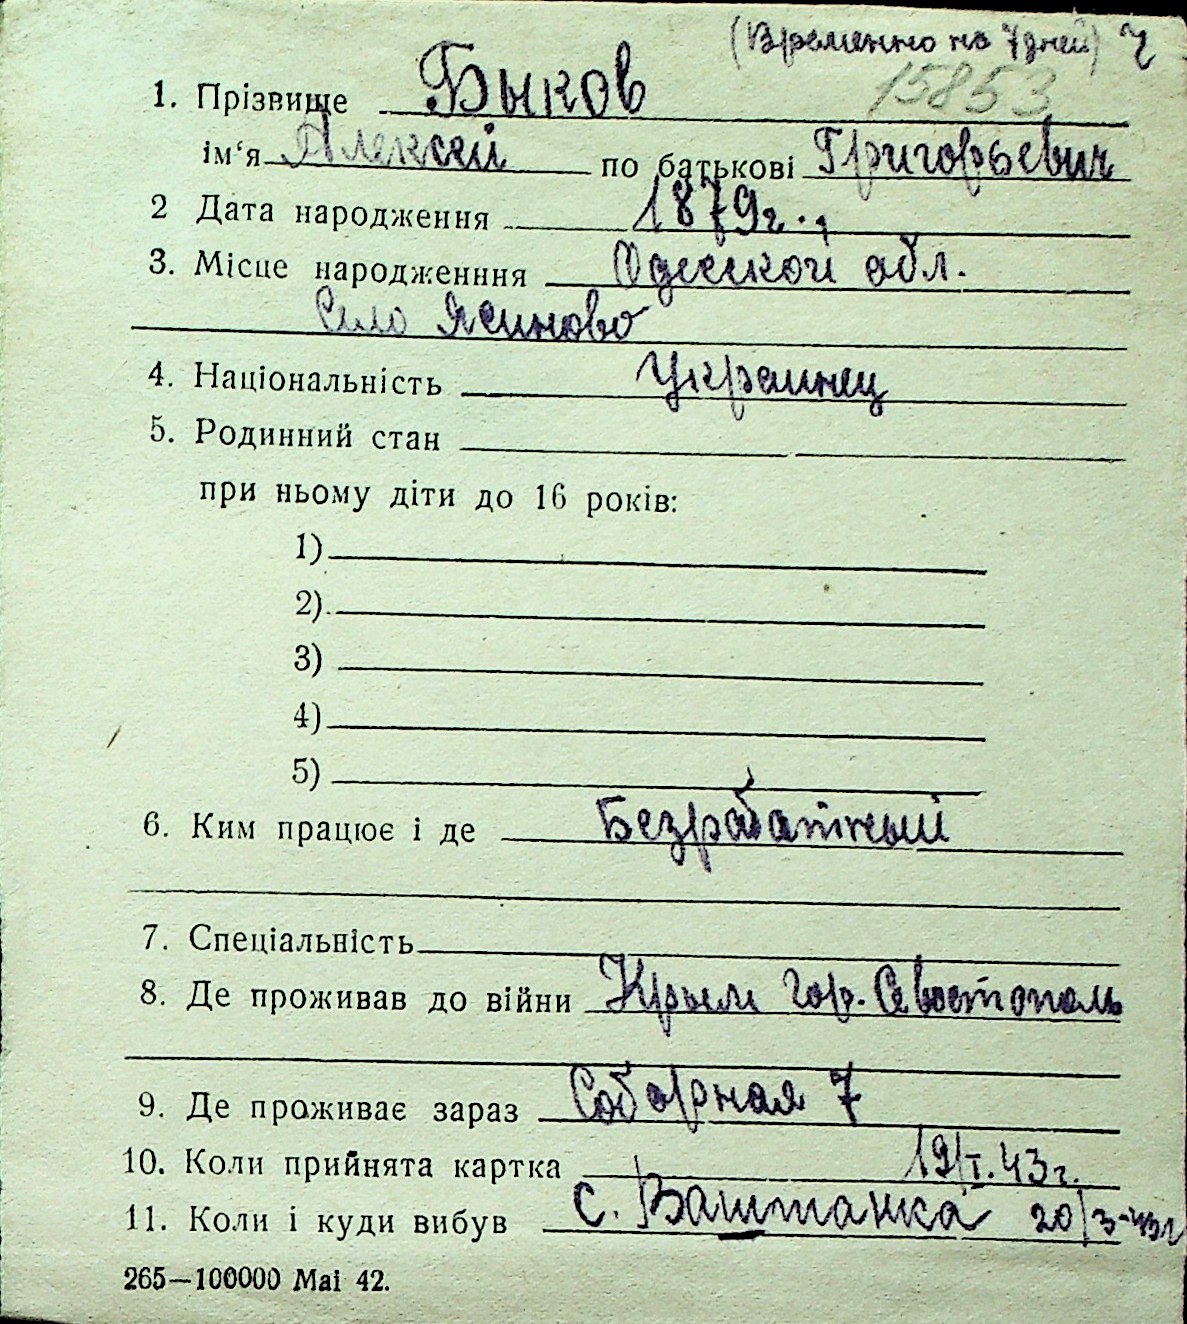 (Временно на 7 дней) Ч
15853
1. Прізвище Быков
ім‘я Алексей по батькові Григорьевич
2 Дата народження 1879г.,
3. Місце народженння Одесской обл.
Село Ясиново
4. Національність Украинец
5. Родинний стан
при ньому діти до 16 років:
1)
2)
3)
4)
5)
6. Ким працює і де Безрабатный
7. Спеціальність
8. Де проживав до війни Крым гор. Севостополь
9. Де проживає зараз Соборная 7
10. Коли прийнята картка 19/I.43г.
11. Коли і куди вибув с. Ваштанка 20/3-43г
265—100000 Mai 42.